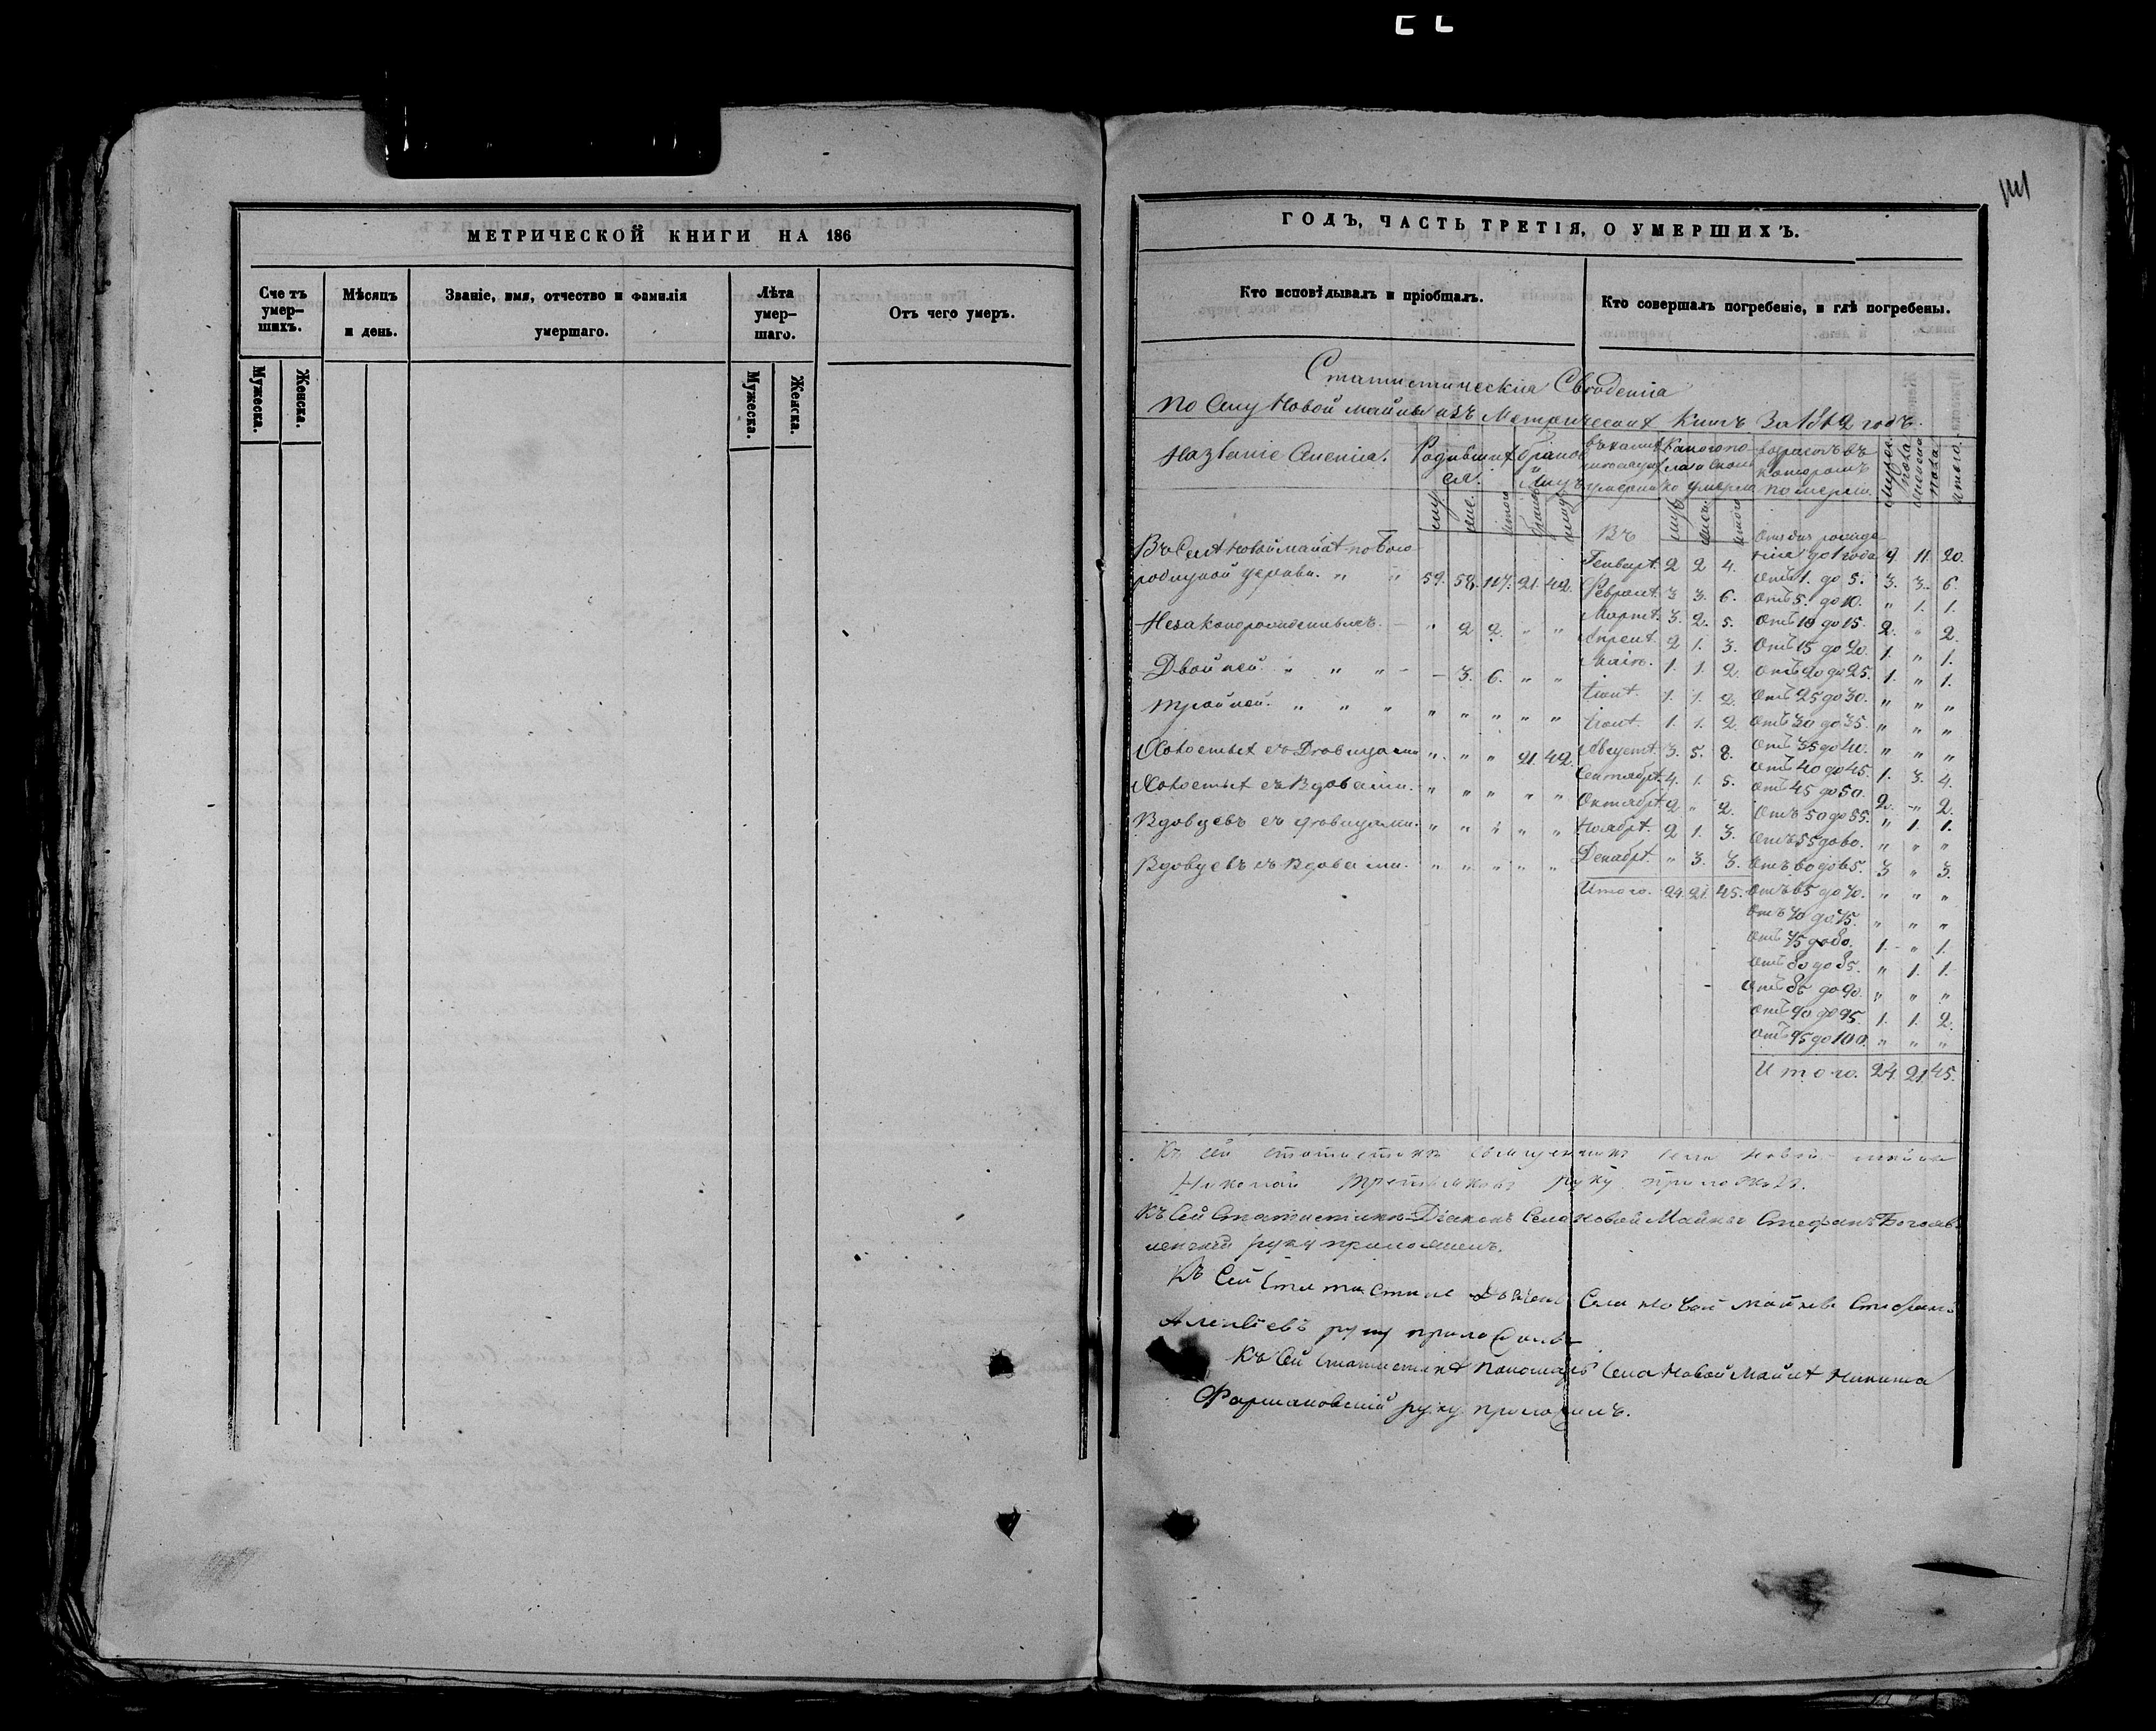 141
МЕТРИЧЕСКОЙ КНИГИ НА 186
Счетъ умер-шихъ.
Мужеска.
Женска.
Мѣсяцъ и день.
Званіе, имя, отчество и фамилія умершаго.
Лѣта умер-шаго.
Мужеска.
Женска.
Отъ чего умеръ.
ГОДЪ, ЧАСТЬ ТРЕТІЯ, О УМЕРШИХЪ.
Кто исповѣдывалъ и пріобщалъ.
Кто совершалъ погребеніе, и гдѣ погребены.
Статистическія Свѣдѣнія
по Селу Новой Майны изъ Метрическихъ Книгъ за 18 2 годъ.
Названіе Родившихся
муж. жен. итого
Въ Селѣ Новой Майнѣ по Бого
родицкой церкви. " " 59. 58. 117. 21. 42.
Незаконорожденныхъ. " 2 2. " "
Двойней. " " " - 3. 6. " "
Тройней. " " " " " " " "
Холостыхъ съ Дѣвицами " " " 21. 42.
Холостыхъ съ Вдовами. " " " " "
Вдовцевъ съ Дѣвицами. " " " " "
Вдовцевъ съ Вдовами. " " " " "
Въ
Генварѣ. 2 2 4.
Февралѣ. 3 3. 6.
Мартѣ. 3. 2. 5.
Апрелѣ. 2 1. 3.
Маіѣ. 1. 1. 2.
Іюнѣ. 1. 1. 2.
Іюлѣ. 1. 1. 2.
Августѣ. 3. 5. 8.
Сентябрѣ. 4. 1. 5.
Октябрѣ. 2. " 2.
Ноябрѣ. 2 1. 3.
Декабрѣ. " 3. 3.
Итого. 24. 21. 45.
возрастъ въ которомъ померли.
мужес. пола
женскаго пола.
итого.
Отъ рожде
нія до 1 года 9 11. 20.
Отъ 1. до 5. 3. 3. 6.
Отъ 5. до 10. " 1. 1.
Отъ 10 до 15. 2. " 2.
Отъ 15 до 20. 1. " 1.
Отъ 20 до 25. 1. " 1.
Отъ 25 до 30. " " "
Отъ 30 до 35. " " "
Отъ 35 до 40. " " "
Отъ 40 до 45. 1. 3. 4.
Отъ 45 до 50. 2. " 2.
Отъ 50 до 55. " 1. 1.
Отъ 55 до 60. " " "
Отъ 60 до 65. 3 " 3.
Отъ 65 до 70. " " "
Отъ 70 до 75. " " "
Отъ 75 до 80. 1. " 1.
Отъ 80 до 85. " 1. 1.
Отъ 85 до 90. " " "
Отъ 90 до 95. 1. 1. 2.
Отъ 95 до 100. " " "
Итого. 24 21 45.
Къ сей статистикѣ священникъ села Новой Майны
Николай Третьяковъ руку приложилъ.
Къ Сей Статистикѣ Діаконъ Села Новой Майны Стефанъ Богояв
ленскій руку приложилъ.
Къ Сей Статистике Села Новой Майны Стефанъ
руку приложилъ
Къ Сей Статистикѣ Пономарь Села Новой Майнѣ Никита
Фармаковскій руку приложилъ.